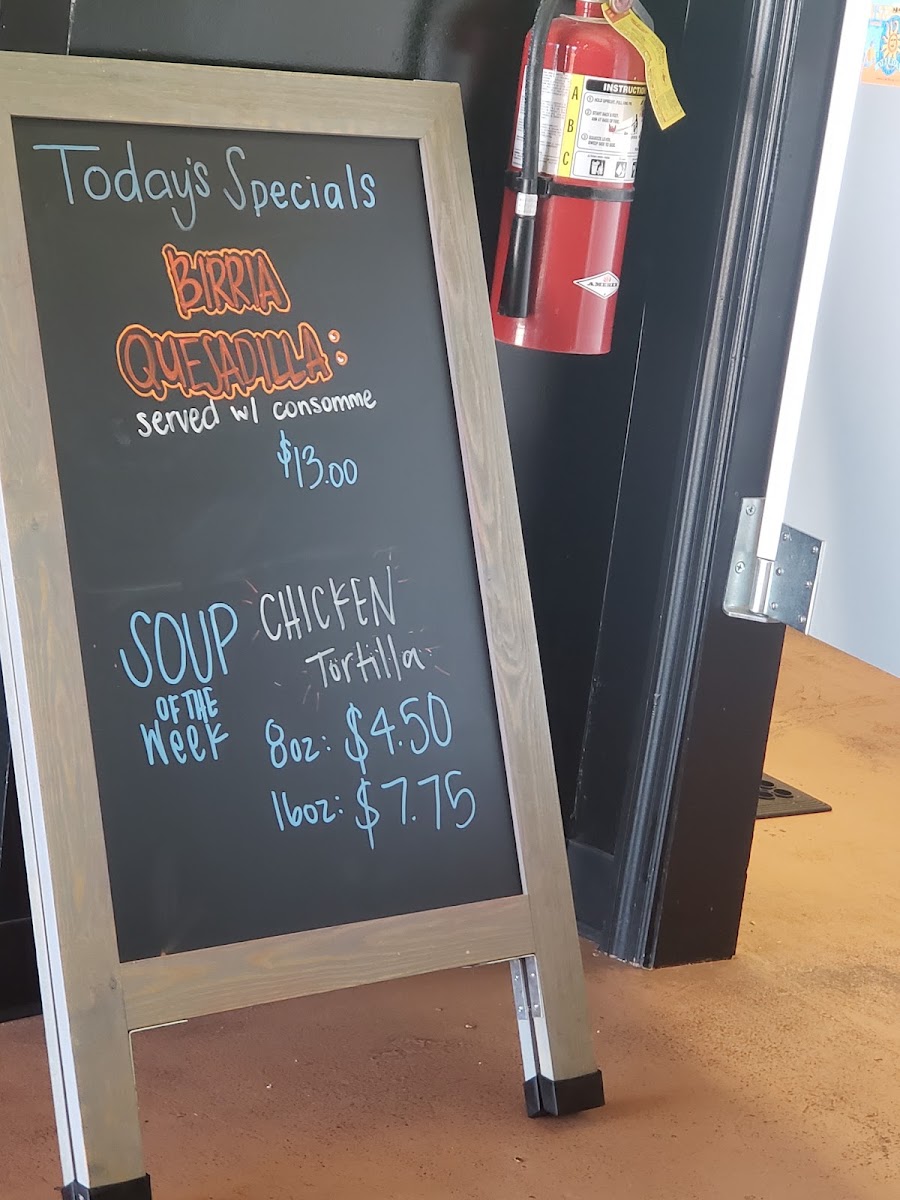 Today's Specials
BIRRIA
QUESADILLA:
served w/ consomme
$13.00
SOUP
OF THE
Week
CHICKEN
Tortilla
8oz: $4.50
16oz: $7.75
INSTRUCTIO
A
B
C
AMEREX